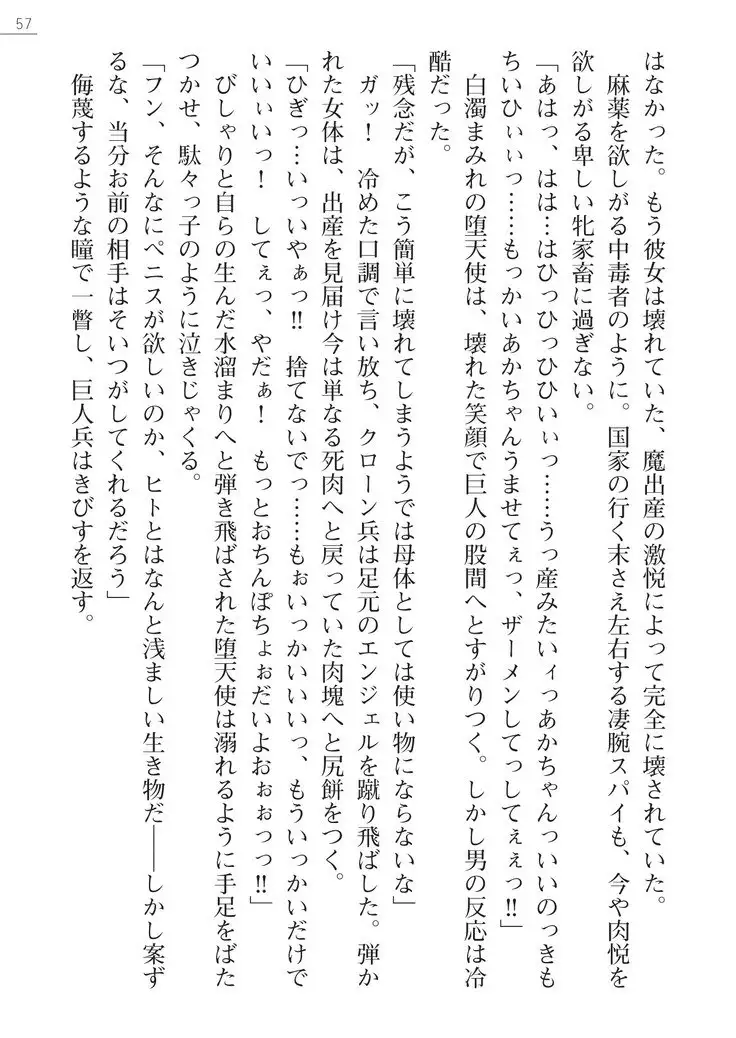 57
はなかった。もう彼女は壊れていた、魔出産の激悦によって完全に壊されていた。
麻薬を欲しがる中毒者のように。国家の行く末さえ左右する凄腕スパイも、今や肉悦を
欲しがる卑しい牝家畜に過ぎない。
「あはっ、はは…はひっひっひひいぃっ……うっ産みたいィっあかちゃんっいいのっきも
ちいひぃぃっ……もっかいあかちゃんうませてぇっ、ザーメンしてってしてぇぇっ‼」
白濁まみれの堕天使は、壊れた笑顔で巨人の股間へとすがりつく。しかし男の反応は冷
酷だった。
「残念だが、こう簡単に壊れてしまうようでは母体としては使い物にならないな」
ガッ！　冷めた口調で言い放ち、クローン兵は足元のエンジェルを蹴り飛ばした。弾か
れた女体は、出産を見届け今は単なる死肉へと戻っていた肉塊へと尻餅をつく。
「ひぎっ…いっいやぁっ‼　捨てないでっ……もぉいっかいいいっ、もういっかいだけで
いいぃいっ！　してぇっ、やだぁ！　もっとおちんぽちょぉだいよおぉぉっっ‼」
びしゃりと自らの生んだ水溜まりへと弾き飛ばされた堕天使は溺れるように手足をばた
つかせ、駄々っ子のように泣きじゃくる。
「フン、そんなにペニスが欲しいのか、ヒトとはなんと浅ましい生き物だ――しかし案ず
るな、当分お前の相手はそいつがしてくれるだろう」
侮蔑するような瞳で一瞥し、巨人兵はきびすを返す。